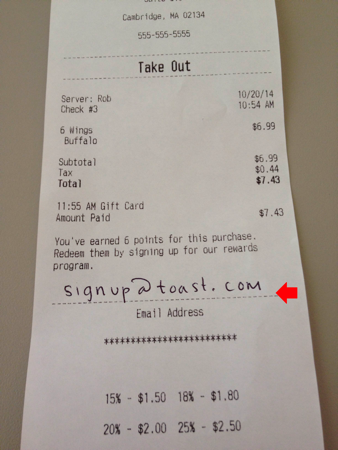 Cambridge, MA 02134
555-555-5555
Take Out
Server: Rob 10/20/14
Check #3 10:54 AM
6 Wings $6.99
Buffalo
Subtotal $6.99
Tax $0.44
Total $7.43
11:55 AM Gift Card
Amount Paid $7.43
You've earned 6 points for this purchase.
Redeem them by signing up for our rewards
program.
signup@toast.com
Email Address
*************************
15% - $1.50 18% - $1.80
20% - $2.00 25% - $2.50